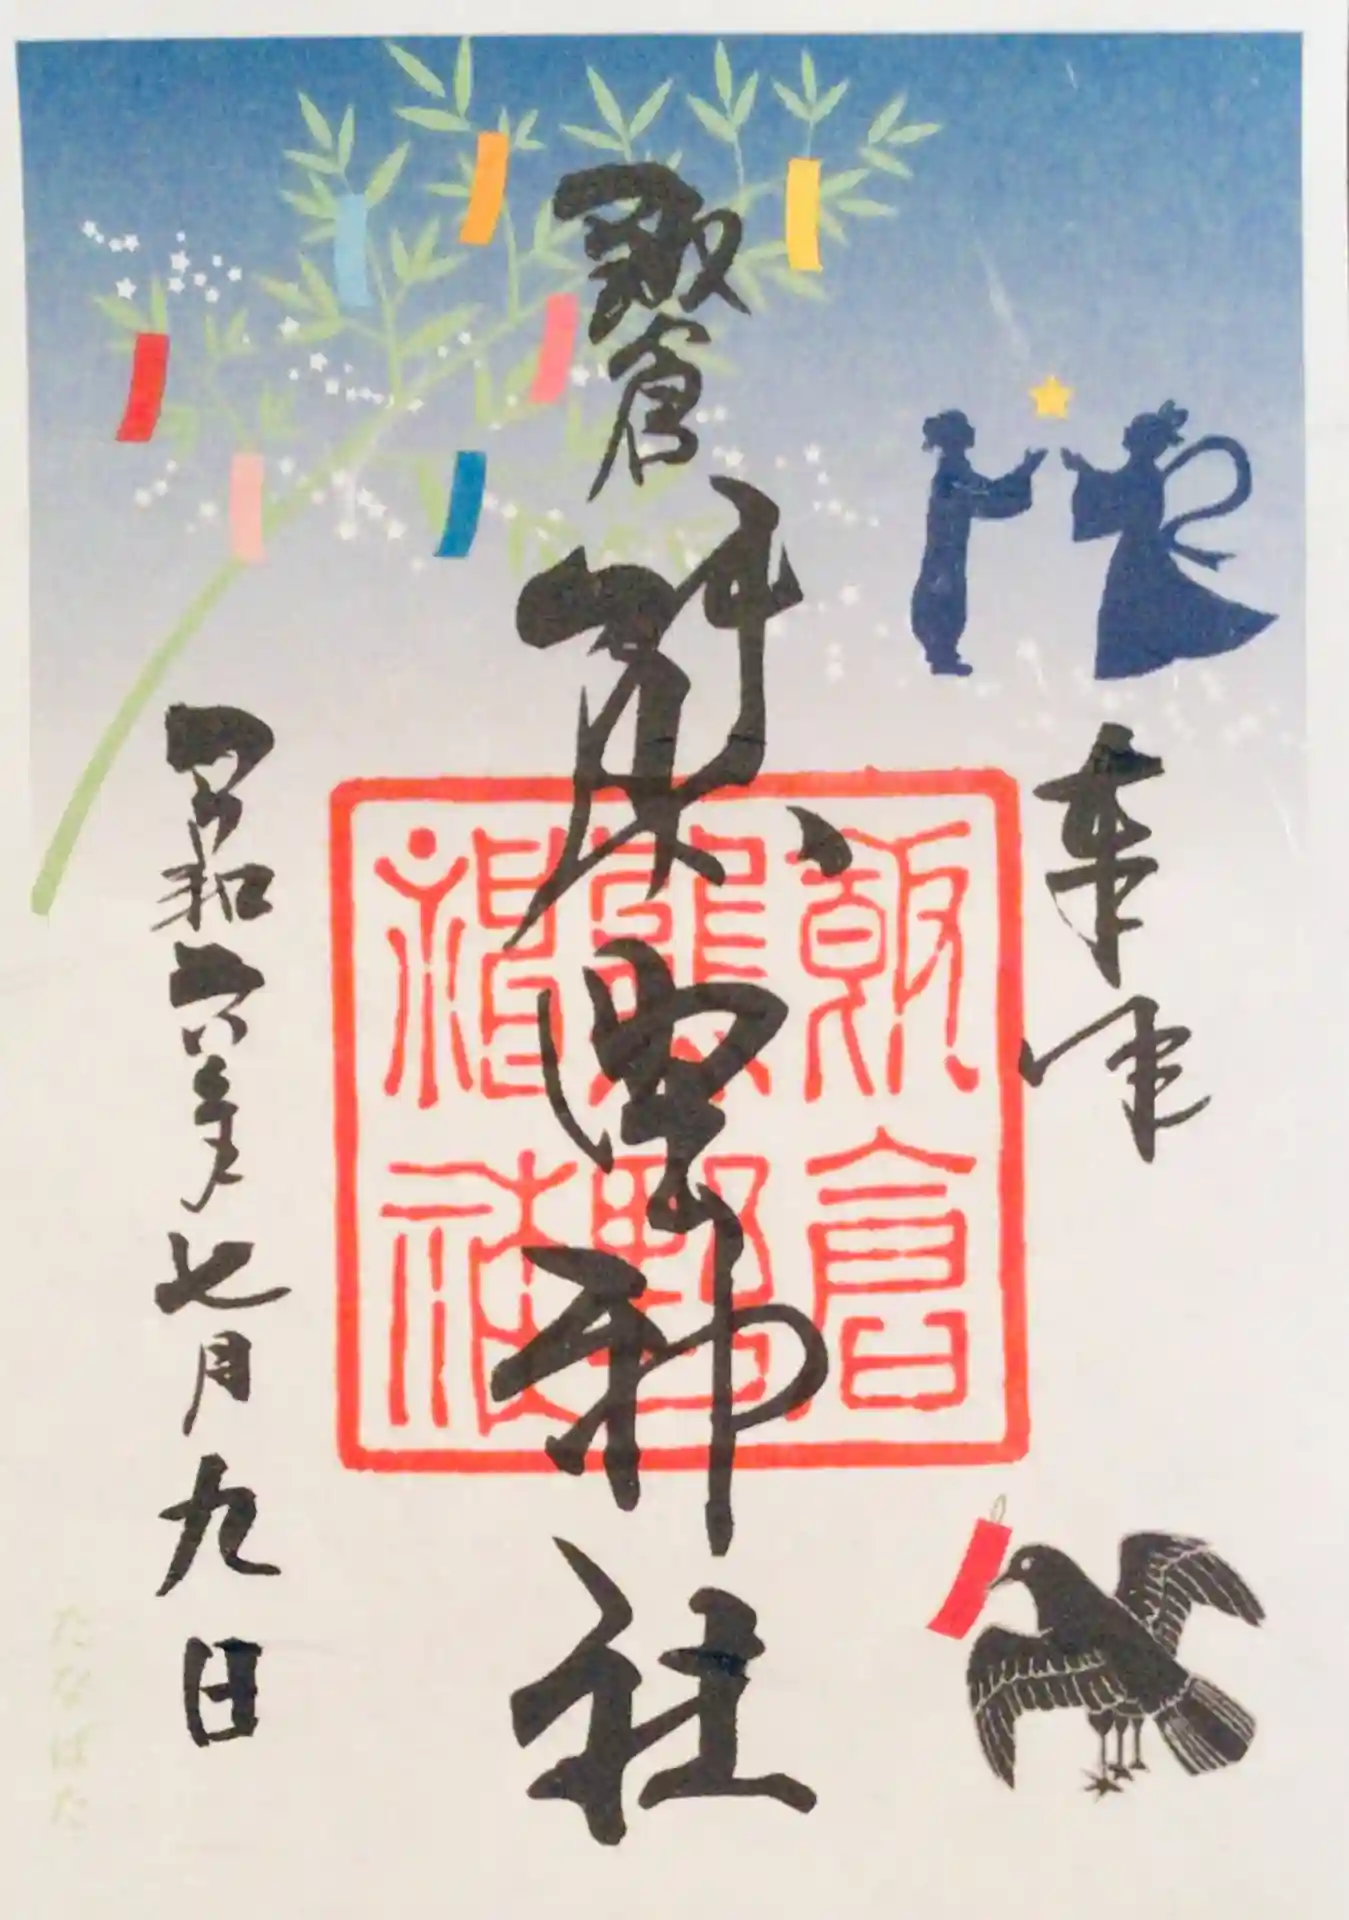 奉拝
飯倉
熊野神社
飯倉
熊野
神社
昭和六年七月九日
たなばた